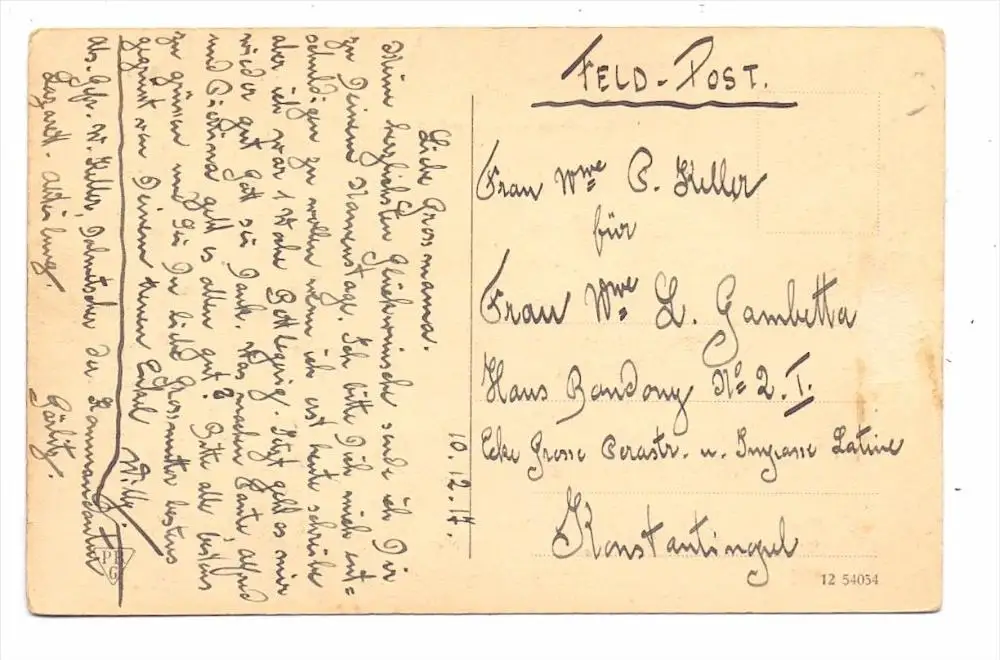 10.12.17.
Liebe Grossmama.
Meine herzlichsten Glückwünsche sende ich Dir
zu Deinem Namenstage. Ich bitte Dich mich ent=
schuldigen zu wollen wenn ich erst heute schreibe
aber ich war 1 Woche Bettlegerig. Jetzt geht es mir
wieder gut Gott sei Dank. Was machen Tante, Alfred
und geht es allen gut? Bitte alle bestens
zu grüssen und sei Du liebe Grossmutter bestens
gegrüsst von Deinem treuen Enkel Willy.
Abs. Gefr. W. Keller, Dolmetscher der Kommandantur
Lazarett-Abteilung. Görlitz.
FELD-POST.
Frau Wwe P. Keller
für
Frau Wwe L. Gambetta
Haus Bandony No 2. I.
Ecke Grosse Perastr. u. Impasse Latine
Konstantinopel
PFG
12 54054